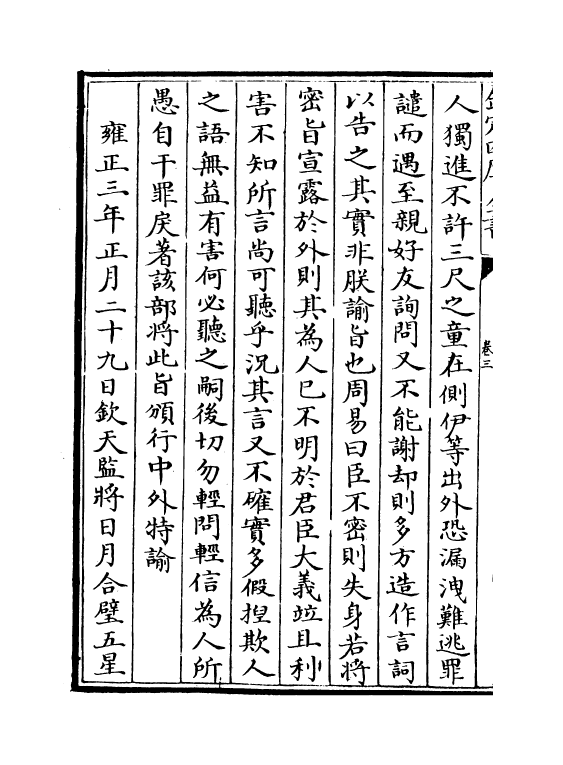 欽定四庫全書
卷三
人獨進不許三尺之童在側伊等出外恐漏洩難逃罪
譴而遇至親好友詢問又不能謝却則多方造作言詞
以告之其實非朕諭旨也周易曰臣不密則失身若將
密旨宣露於外則其為人已不明於君臣大義竝且利
害不知所言尚可聽乎況其言又不確實多假揑欺人
之語無益有害何必聽之嗣後切勿輕問輕信為人所
愚自干罪戾著該部將此旨頒行中外特諭
雍正三年正月二十九日欽天監將日月合璧五星